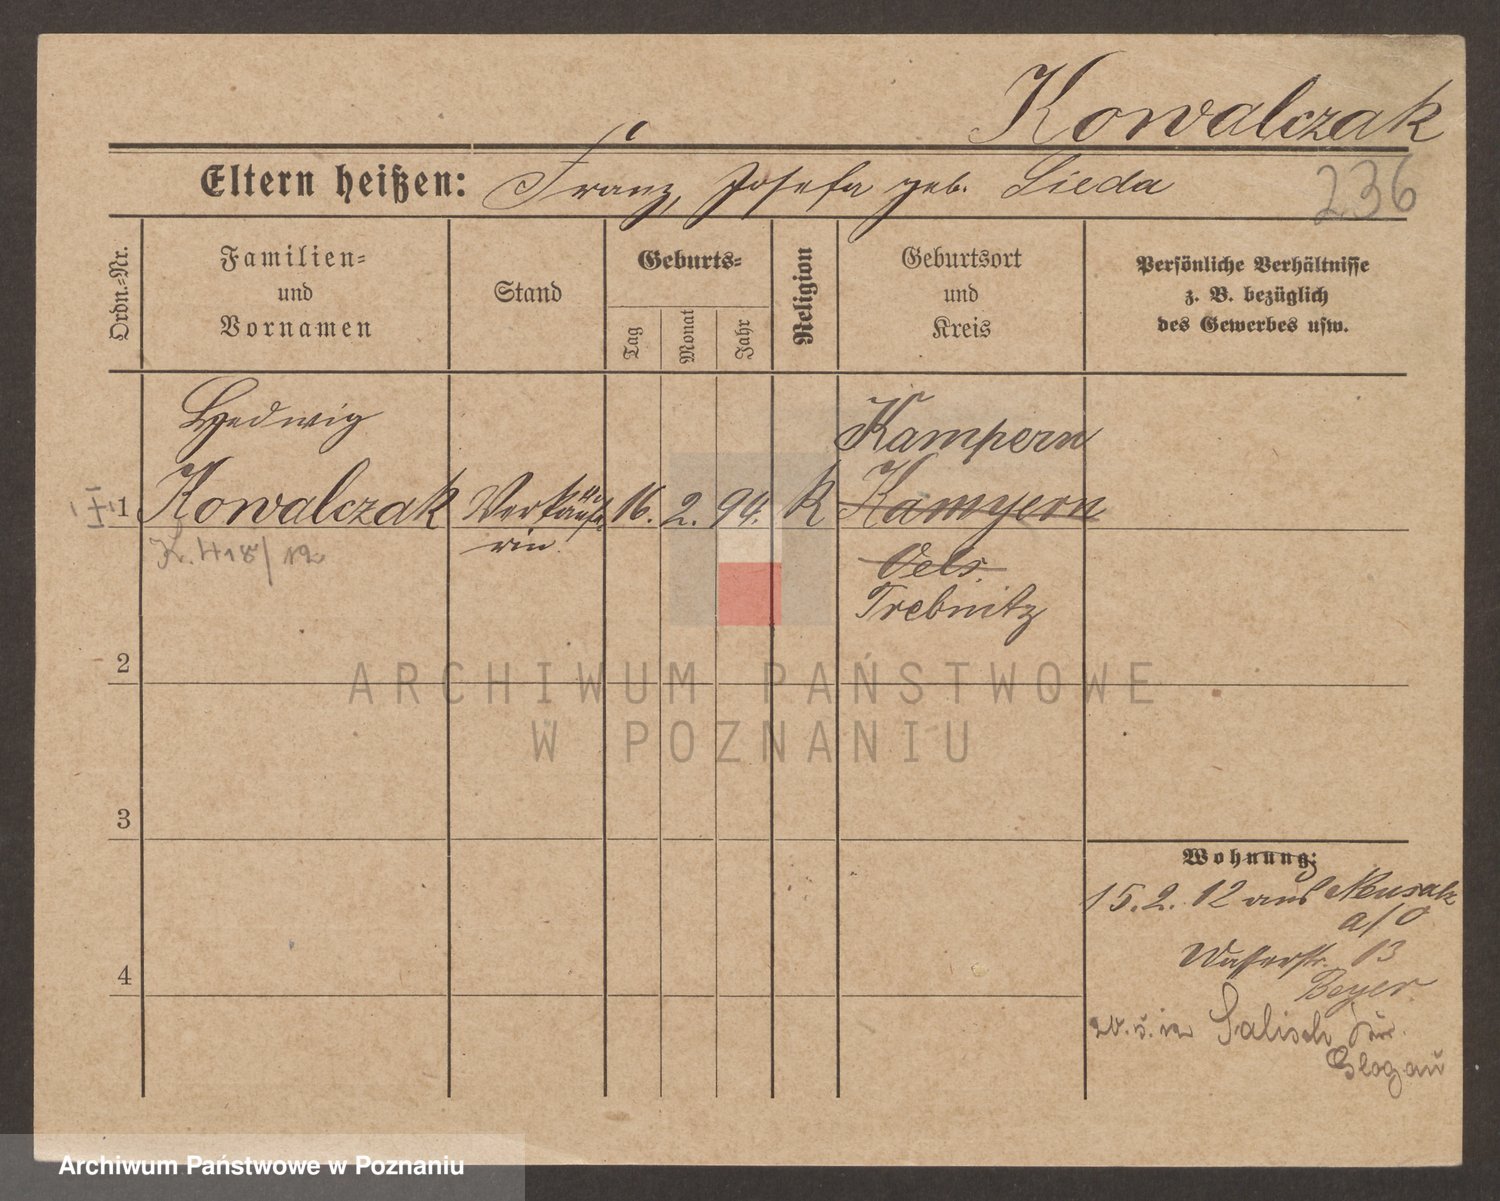 Kowalczak
Eltern heißen: Franz, Josefa geb. Lieda
236
Ordn.-Nr.
Familien-
und
Vornamen
Stand
Geburts-
Tag
Monat
Jahr
Religion
Geburtsort
und
Kreis
Persönliche Verhältnisse
z. B. bezüglich
des Gewerbes usw.
Hedwig
Kampern
1 Kowalczak Verkäufe- 16. 2. 94. K Kampern
rin.
K. 418/12
Oels.
Trebnitz
2
ARCHIWUM PAŃSTWOWE
W POZNANIU
3
Wohnung:
15.2.12 aus Neusalz
a/O
Wasserstr. 13
Beyer
20.5.12 Salisch Kr.
Glogau
4
Archiwum Państwowe w Poznaniu